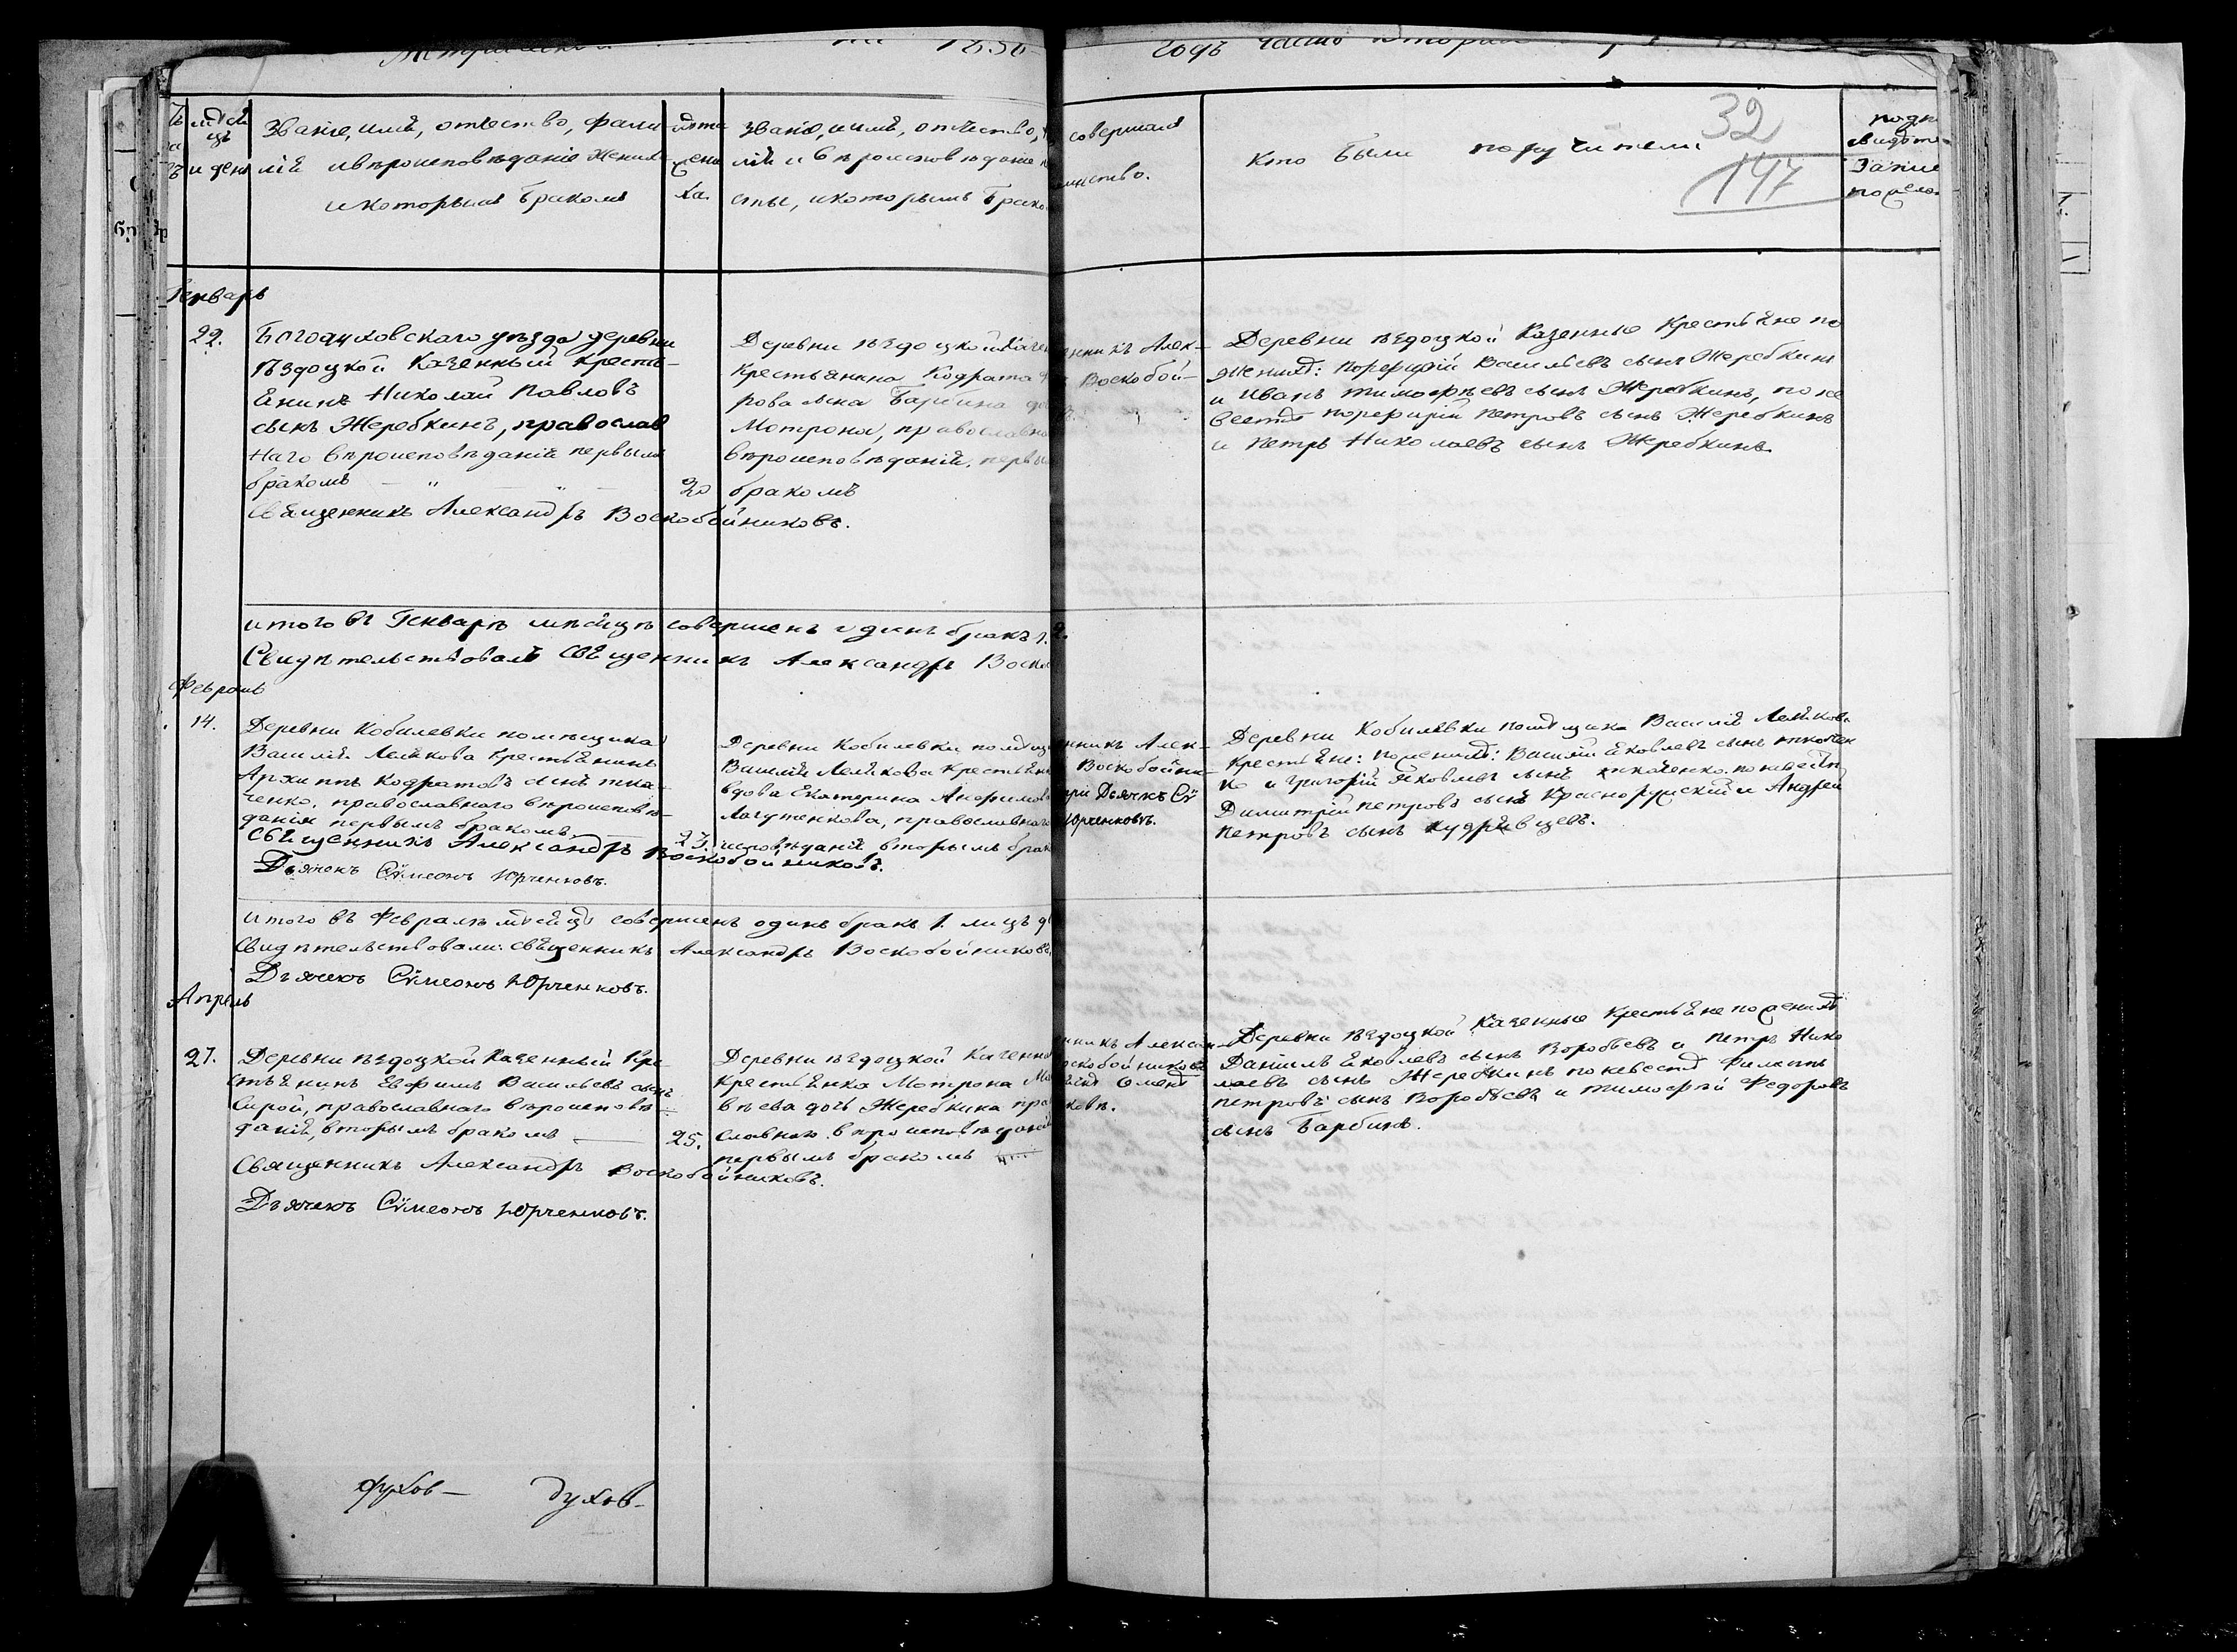 годъ часть
мѣсяцъ
и день
Званіе, имя, отчество, фами
лія и вѣроисповѣданіе жениха
и которымъ бракомъ
лѣта
жени
ха.
званіе, имя, отчество,
лія и вѣроисповѣданіе
сты, и которымъ брако
совершалъ
Кто были поручители
32
147
Генварь
22.
Богодуховскаго уѣзда деревни
Ѣздоцкой Казенный кресть-
янинъ Николай Павловъ
сынъ Жеребкинъ, православ
наго вѣроисповѣданія первымъ
бракомъ
20
Священникъ Александръ Воскобойниковъ.
Деревни ѣздоцкой
Крестьянина Кодрата
рова сына Барбина
Мотрона, православна
вѣроисповѣданія, первы
бракомъ
нникъ Алек-
Воскобой-
Деревни ѣздоцкой Казенные Крестьяне по
женихѣ: Порфирій Васильевъ сынъ Жеребкинъ
и Иванъ Тимофѣевъ сынъ Жеребкинъ, по не
вестѣ Порфирій Петровъ сынъ Жеребкинъ
и Петръ Николаевъ сынъ Жеребкинъ.
итого въ Генварѣ мѣсяцѣ совершенъ одинъ бракъ 1. 2.
Свидѣтельствовалъ Священникъ Александръ Воско
Февраль
14.
Деревни Кобилевки помѣщика
Василія Лелякова Крестьянинъ
Архипъ Кодратовъ сынъ тка-
ченко, православнаго вѣроисповѣ-
данія первымъ бракомъ
23.
Священникъ Александръ Воскобойниковъ.
Дьячекъ Сѵмеонъ Юрченковъ.
Деревни Кобилевки помѣщ
Василія Лелякова крестьян
вдова Екатерина Анфимова
Лагутенкова, православнаго
исповѣданія вторымъ брак
нникъ Алек-
Воскобойни-
при Дьячкѣ Сѵ
Юрченковъ.
Деревни Кобилевки помѣщика Василія Лелякова
Крестьяне: по женихѣ: Василій Яковлевъ сынъ
ко и Григорій Яковлевъ сынъ по невестѣ
Димитрій Петровъ сынъ Краснорудскій и Андрей
Петровъ сынъ Кудрявцевъ.
итого въ Февралѣ мѣсяцѣ совершенъ одинъ бракъ 1. лицъ
Свидѣтельствовали: священникъ Александръ Воскобойниковъ
Дьячекъ Сѵмеонъ Юрченковъ.
Апрель
27.
Деревни ѣздоцкой Казенный Кре-
стьянинъ Евфимъ Васильевъ сынъ
Сирой, православнаго вѣроисповѣ-
данія, вторымъ бракомъ
25.
Священникъ Александръ Воскобойниковъ.
Дьячекъ Сѵмеонъ Юрченковъ.
Деревни ѣздоцкой Казенно
крестьянка Мотрона Мат
вѣева дочь Жеребкина пра
славнаго вѣроисповѣданія
первымъ бракомъ
нникъ Алексан-
оскобойниковъ
ковѣ.
Деревни ѣздоцкой Казенные Крестьяне по женихѣ
Даніилъ Яковлевъ сынъ Воробьевъ и Петръ Нико
лаевъ сынъ Жеребкинъ по невестѣ Филиппъ
Петровъ сынъ Воробьевъ и Тимофѣй Федоровъ
сынъ Барбинъ.
духов- духов-